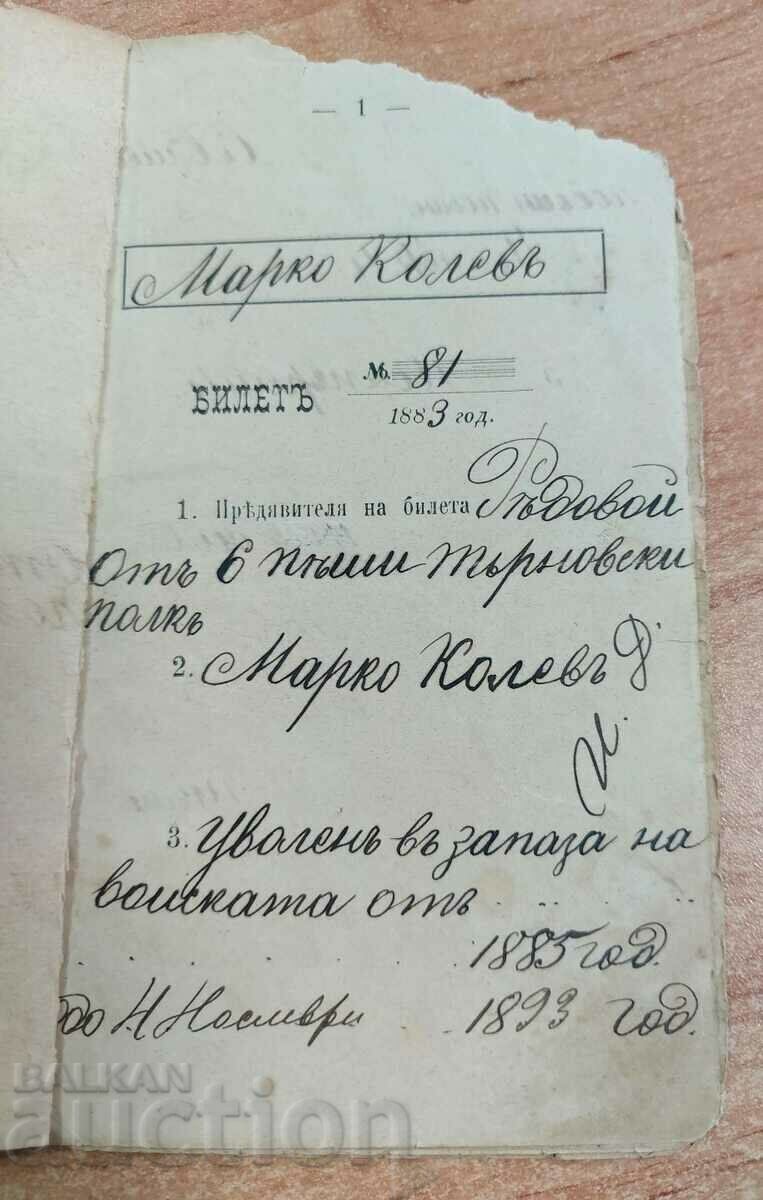 — 1 —
Марко Колевъ
БИЛЕТЪ № 81
1883 год.
1. Прѣдявителя на билета Рѣдовой
отъ 6 пѣши Търновски
полкъ
2. Марко Колевъ
3. Уволенъ въ запаза на
воиската отъ
1885 год.
до Ноември 1893 год.
BALKAN
auction